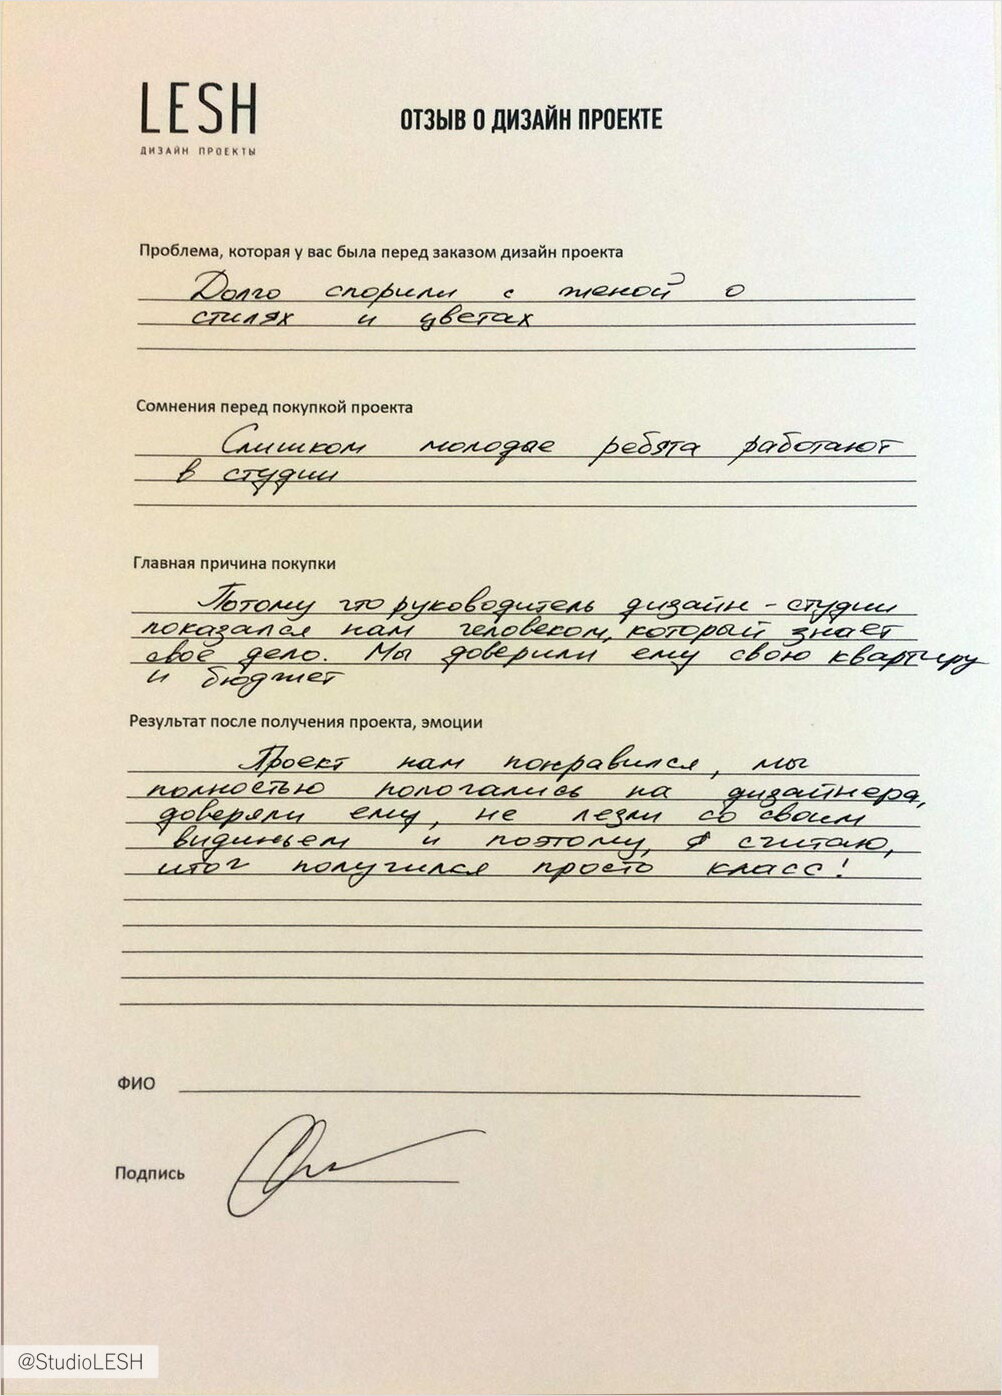 LESH
ДИЗАЙН ПРОЕКТЫ
ОТЗЫВ О ДИЗАЙН ПРОЕКТЕ
Проблема, которая у вас была перед заказом дизайн проекта
Долго спорили с женой о
стилях и цветах
Сомнения перед покупкой проекта
Слишком молодые ребята работают
в студии
Главная причина покупки
Потому что руководитель дизайн - студии
показался нам человеком, который знает
своё дело. Мы доверили ему свою квартиру
и бюджет
Результат после получения проекта, эмоции
Проект нам понравился, мы
полностью пологались на дизайнера,
доверяли ему, не лезли со своим
видиньем и поэтому, я считаю,
итог получился просто класс!
ФИО
Подпись
@StudioLESH